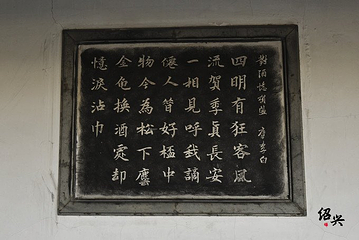 對酒憶賀監 唐李白
四明有狂客風
流賀季真長安
一相見呼我謫
僊人昔好杯中
物今為松下塵
金龜換酒處却
憶淚沾巾
绍兴